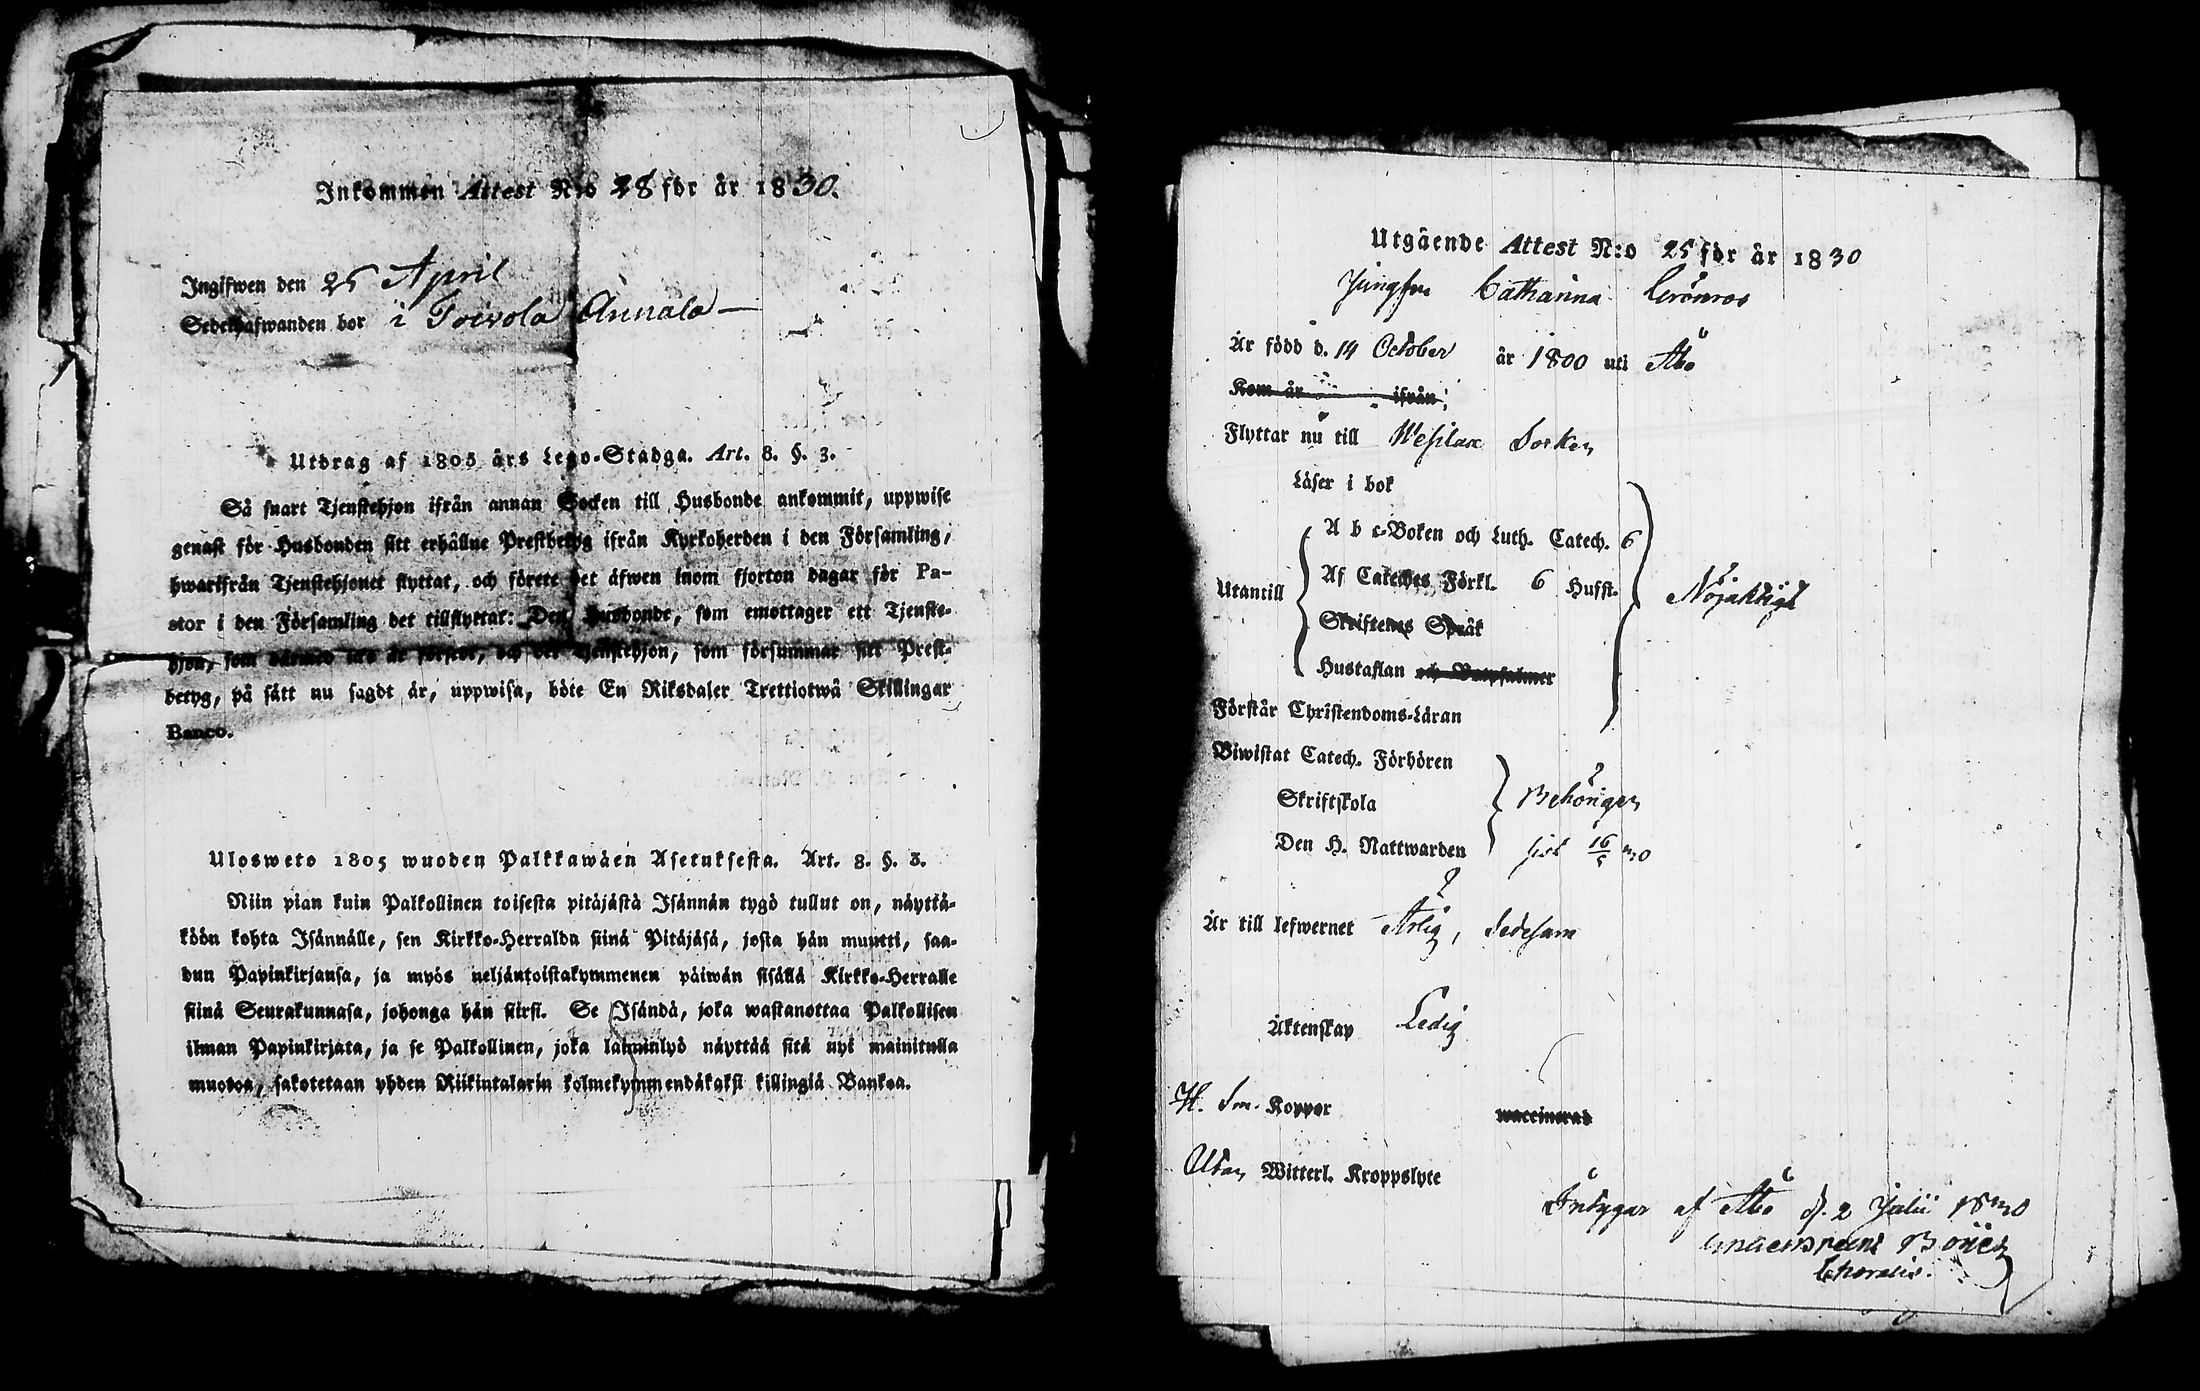 Inkommen Attest N:o 28 för år 1830.
Ingifwen den 25 April
Sedelhafwanden bor i Toivola Annala —
Utdrag af 1805 års Lego-Stadga. Art. 8. §. 3.
Så snart Tjenstehjon ifrån annan Socken till Husbonde ankommit, uppwise
genast för Husbonden sitt erhållne Prestbetyg ifrån Kyrkoherden i den Församling,
hwarifrån Tjenstehjonet flyttat, och förete det äfwen inom fjorton dagar för Pa-
stor i den Församling det tillflyttat: Den Husbonde, som emottager ett Tjenste-
hjon, som därmed icke är försedt, och det Tjenstehjon, som försummar sitt Prest-
betyg, på sätt nu sagdt är, uppwisa, böte En Riksdaler Trettiotwå Skillingar
Banco.
Ulosweto 1805 wuoden Palkkawäen Asetuksesta. Art. 8. §. 3.
Niin pian kuin Palkollinen toisesta pitäjästä Isännän tygö tullut on, näyttä-
köön kohta Isännälle, sen Kirkko-Herralda siinä Pitäjäsä, josta hän muutti, saa-
dun Papinkirjansa, ja myös neljäntoistakymmenen päiwän sisällä Kirkko-Herralle
siinä Seurakunnasa, johonga hän siirsi. Se Isändä, joka wastanottaa Palkollisen
ilman Papinkirjata, ja se Palkollinen, joka laiminlyö näyttää sitä nyt mainitulla
muotoa, sakotetaan yhden Riikintalarin kolmekymmendäkaksi killingiä Bankoa.
Utgående Attest N:o 25 för år 1830
Jungfru Catharina Grönroos
Är född d. 14 October år 1800 uti Åbo
Kom år ifrån
Flyttar nu till Wesilax Socken
Läser i bok
Utantill
A b c-Boken och Luth. Catech. 6
Af Cateches Förkl. 6 Hufst.
Skriftenes Språk
Hustaflan och Botpsalmer
Nöjaktigt
Förstår Christendoms-Läran
Biwistat Catech. Förhören
Skriftskola
Behörigen
Den H. Nattwarden sist 16/5 30
Är till lefwernet Ärlig, Sedesam
Äktenskap Ledig
H. Sm. Koppor waccinerad
Utan Witterl. Kroppslyte
Intygar af Åbo d. 2 Julii 1830